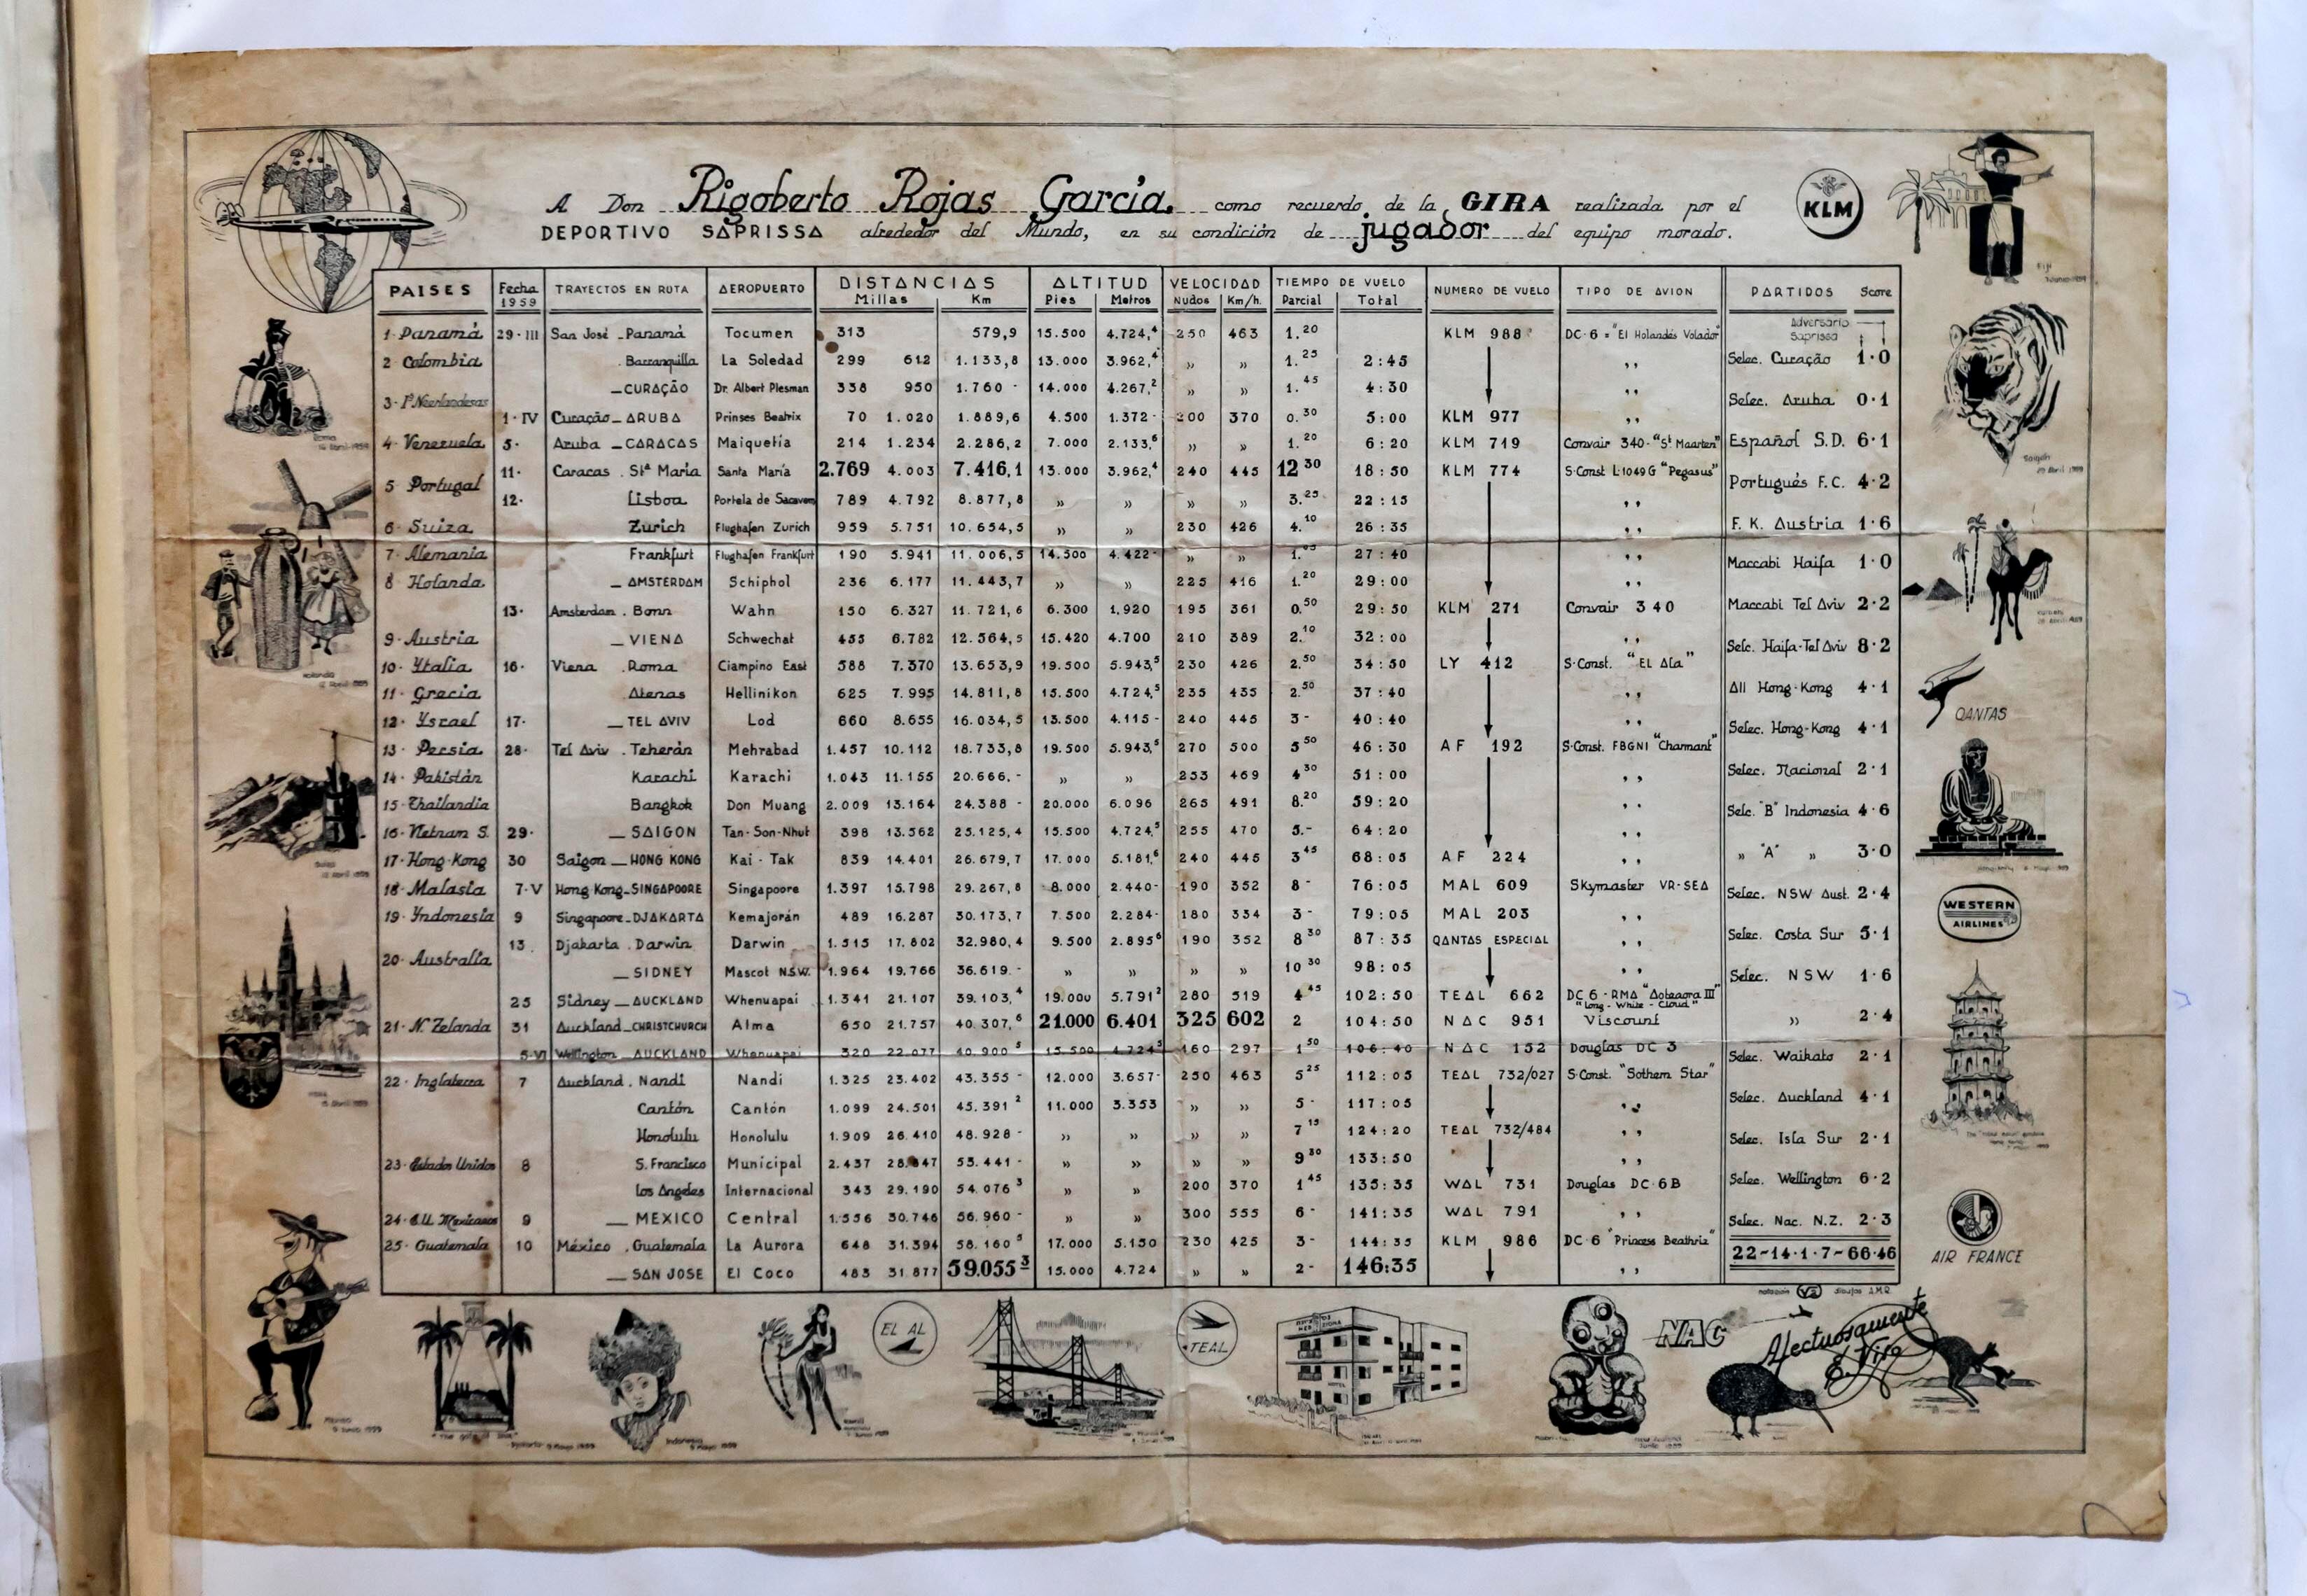 A Don Rigoberto Rojas García. como recuerdo de la GIRA realizada por el
DEPORTIVO SAPRISSA alrededor del Mundo, en su condición de jugador del equipo morado.
KLM
PAISES Fecha 1959 TRAYECTOS EN RUTA AEROPUERTO DISTANCIAS Millas Km ALTITUD Pies Metros VELOCIDAD Nudos Km/h. TIEMPO DE VUELO Parcial Total NUMERO DE VUELO TIPO DE AVION PARTIDOS Score
Adversario
Saprissa
1· Panamá 29·III San José - Panamá Tocumen 313 579,9 15.500 4.724,4 250 463 1.20 KLM 988 DC-6 = "El Holandés Volador"
2 Colombia Barranquilla La Soledad 299 612 1.133,8 13.000 3.962,4 » » 1.25 2:45 ,, Selec. Curaçao 1·0
3· Is Neerlandesas — CURAÇAO Dr. Albert Plesman 338 950 1.760 - 14.000 4.267,2 » » 1.45 4:30 ,, Selec. Aruba 0·1
1·IV Curaçao — ARUBA Prinses Beatrix 70 1.020 1.889,6 4.500 1.372- 200 370 0.30 5:00 KLM 977 ,,
4· Venezuela 5· Aruba — CARACAS Maiquetía 214 1.234 2.286,2 7.000 2.133,6 » » 1.20 6:20 KLM 719 Convair 340-"St Maarten" Español S.D. 6·1
5 Portugal 11· Caracas . Sta María Santa María 2.769 4.003 7.416,1 13.000 3.962,4 240 445 12 30 18:50 KLM 774 S·Const L·1049G "Pegasus" Portugués F.C. 4·2
12· Lisboa Portela de Sacavem 789 4.792 8.877,8 » » » » 3.25 22:15 ,,
6· Suiza Zurich Flughafen Zurich 959 5.751 10.654,5 » » 230 426 4.10 26:35 ,, F. K. Austria 1·6
7· Alemania Frankfurt Flughafen Frankfurt 190 5.941 11.006,5 14.500 4.422- » » 1.05 27:40 ,, Maccabi Haifa 1·0
8 Holanda — AMSTERDAM Schiphol 236 6.177 11.443,7 » » 225 416 1.20 29:00 ,,
13· Amsterdam . Bonn Wahn 150 6.327 11.721,6 6.300 1.920 195 361 0.50 29:50 KLM 271 Convair 340 Maccabi Tel Aviv 2·2
9· Austria — VIENA Schwechat 455 6.782 12.564,5 15.420 4.700 210 389 2.10 32:00 ,, Selc. Haifa-Tel Aviv 8·2
10· Ytalia 16· Viena . Roma Ciampino East 588 7.370 13.653,9 19.500 5.943,5 230 426 2.50 34:50 LY 412 S·Const. "EL Ala"
11· Grecia Atenas Hellinikon 625 7.995 14.811,8 15.500 4.724,5 235 435 2.50 37:40 ,, All Hong-Kong 4·1
12· Ysrael 17· — TEL AVIV Lod 660 8.655 16.034,5 13.500 4.115- 240 445 3- 40:40 ,, Selec. Hong-Kong 4·1
13· Persia 28· Tel Aviv . Teherán Mehrabad 1.457 10.112 18.733,8 19.500 5.943,5 270 500 5 50 46:30 AF 192 S·Const. FBGNI "Charmant"
14· Pakistán Karachi Karachi 1.043 11.155 20.666.- » » 253 469 4 30 51:00 ,, Selec. Nacional 2·1
15· Thailandia Bangkok Don Muang 2.009 13.164 24.388 - 20.000 6.096 265 491 8.20 59:20 ,, Selc. "B" Indonesia 4·6
16· Vietnam S. 29· — SAIGON Tan-Son-Nhut 398 13.562 25.125,4 15.500 4.724,5 255 470 5.- 64:20 ,,
17· Hong-Kong 30 Saigon — HONG KONG Kai - Tak 839 14.401 26.679,7 17.000 5.181,6 240 445 3 45 68:05 AF 224 ,, » "A" » 3·0
18· Malasia 7·V Hong Kong - SINGAPOORE Singapoore 1.397 15.798 29.267,8 8.000 2.440- 190 352 8- 76:05 MAL 609 Skymaster VR-SEA Selec. NSW Aust. 2·4
19· Yndonesia 9 Singapoore - DJAKARTA Kemajorán 489 16.287 30.173,7 7.500 2.284- 180 334 3- 79:05 MAL 203 ,,
20· Australia 13 Djakarta . Darwin Darwin 1.515 17.802 32.980,4 9.500 2.895 6 190 352 8 30 87:35 QANTAS ESPECIAL ,, Selec. Costa Sur 5·1
— SIDNEY Mascot N.S.W. 1.964 19.766 36.619.- » » » » 10 30 98:05 ,, Selec. NSW 1·6
25 Sidney — AUCKLAND Whenuapai 1.341 21.107 39.103,4 19.000 5.791 2 280 519 4 45 102:50 TEAL 662 DC 6 - RMA "Aoteaora III"
"Long - White - Cloud"
21· N. Zelanda 31 Auckland — CHRISTCHURCH Alma 650 21.757 40.307,6 21.000 6.401 325 602 2 104:50 NAC 951 Viscount » 2·4
5·VI Wellington — AUCKLAND Whenuapai 320 22.077 40.900 5 15.500 4.724 5 160 297 1 50 106:40 NAC 152 Douglas DC 3 Selec. Waikato 2·1
22· Inglaterra 7 Auckland . Nandi Nandi 1.325 23.402 43.355 - 12.000 3.657- 250 463 5 25 112:05 TEAL 732/027 S·Const. "Sothern Star"
Cantón Cantón 1.099 24.501 45.391 2 11.000 3.353 » » 5- 117:05 ,, Selec. Auckland 4·1
Honolulu Honolulu 1.909 26.410 48.928 - » » » » 7 15 124:20 TEAL 732/484 ,, Selec. Isla Sur 2·1
23· Estados Unidos 8 S. Francisco Municipal 2.437 28.847 53.441 - » » » » 9 30 133:50 ,,
Los Angeles Internacional 343 29.190 54.076 3 » » 200 370 1 45 135:35 WAL 731 Douglas DC·6B Selec. Wellington 6·2
24· E.U. Mexicanos 9 — MEXICO Central 1.556 30.746 56.960 - » » 300 555 6- 141:35 WAL 791 ,, Selec. Nac. N.Z. 2·3
25· Guatemala 10 México . Guatemala La Aurora 648 31.394 58.160 5 17.000 5.150 230 425 3- 144:35 KLM 986 DC·6 "Princess Beathrix" 22-14·1·7-66·46
— SAN JOSE El Coco 483 31.877 59.055 3 15.000 4.724 » » 2- 146:35 ,,
QANTAS
WESTERN
AIRLINES
AIR FRANCE
dibujos A.M.R.
EL AL
TEAL
NAC
Afectuosamente